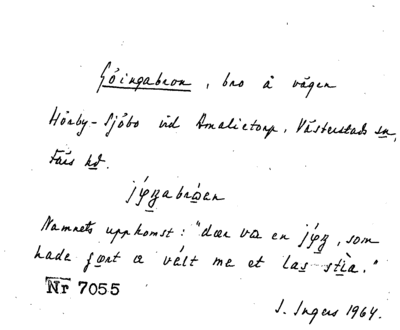 Göingabron, bro å vägen
Hörby-Sjöbo vid Amalietorp, Västerstads sn,
Färs hd.
jýŋabrɷen
Namnets uppkomst: "dær va en jýŋ, som
hade çørt æ vält me et las stìa."
Nr 7055
I. Ingers 1964.